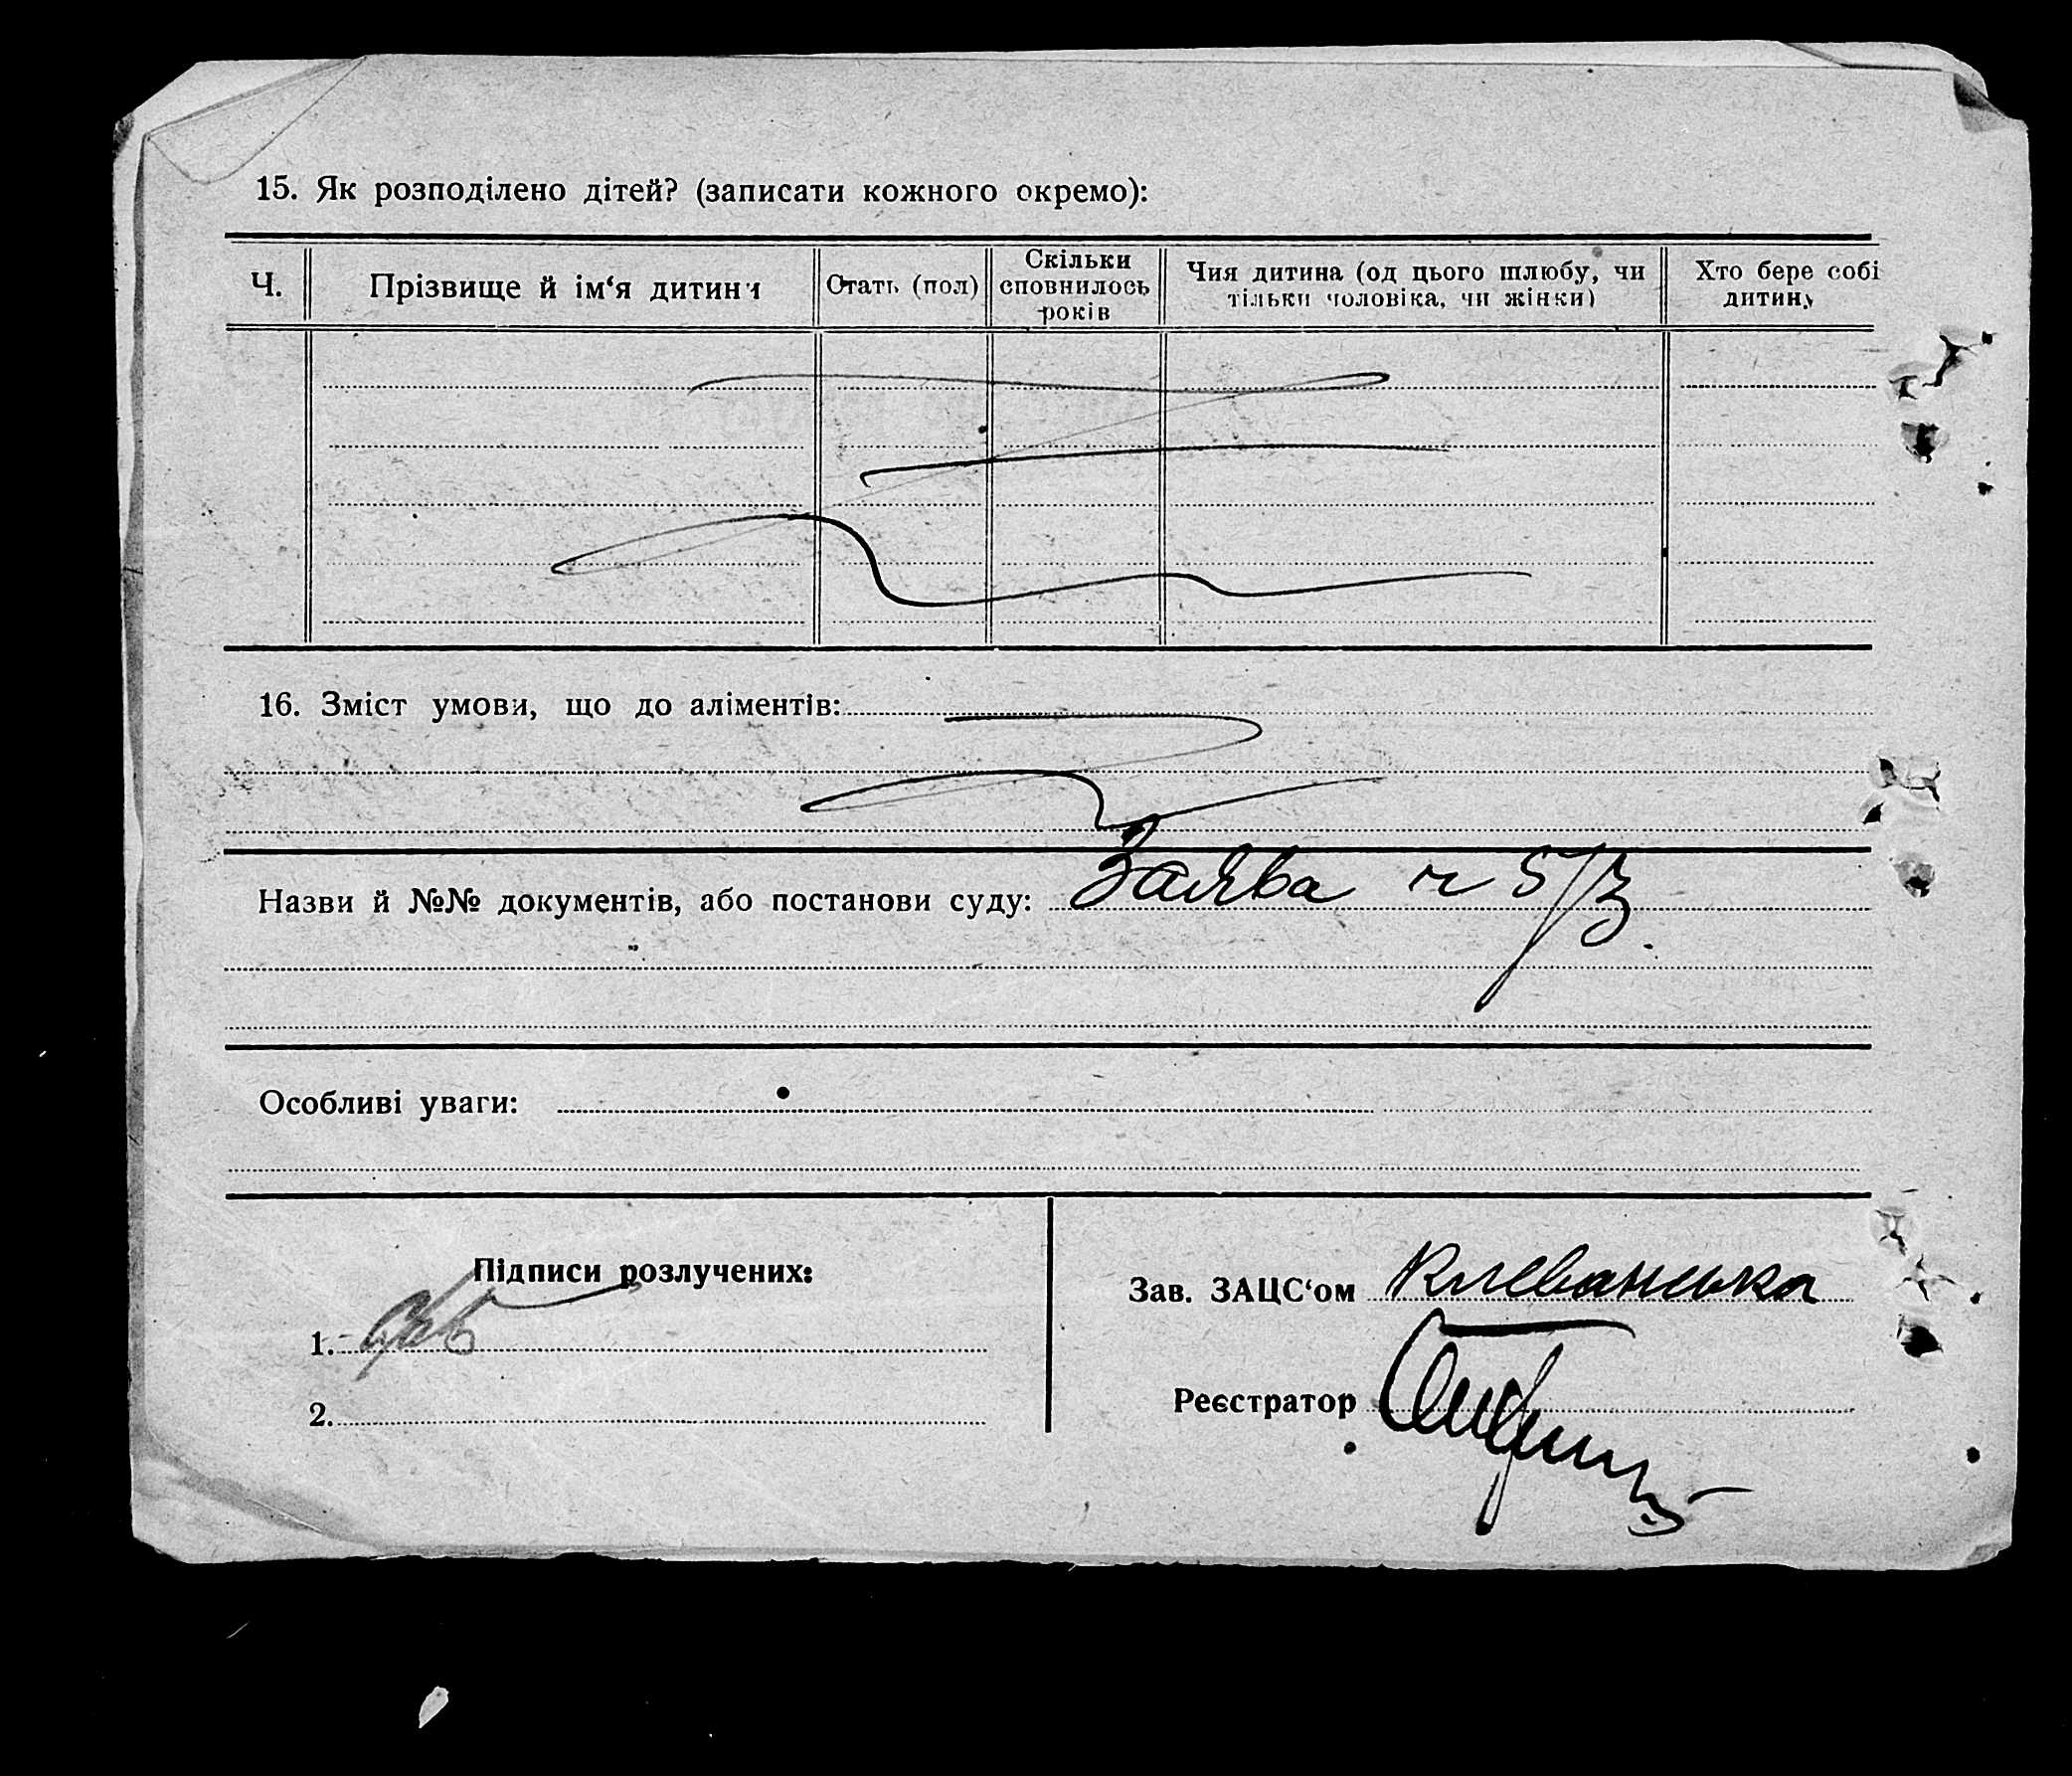 15. Як розподілено дітей? (записати кожного окремо):
Ч.
Прізвище й ім‘я дитини
Стать (пол)
Скільки
сповнилось
років
Чия дитина (од цього шлюбу, чи
тільки чоловіка, чи жінки)
Хто бере собі
дитину
16. Зміст умови, що до аліментів:
Назви й №№ документів, або постанови суду: Заява ч 5/3.
Особливі уваги:
Підписи розлучених:
1.
2.
Зав. ЗАЦС‘ом Клеванська
Реєстратор